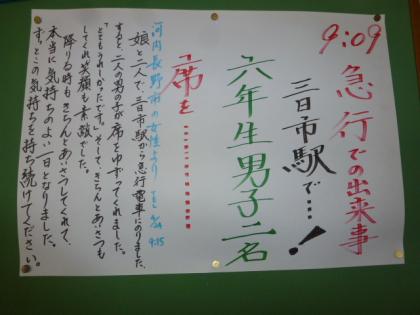 9:09 急行での出来事
三日市駅で…!
六年生男子二名
「席を…………
河内長野市の女性より
9:15
娘と二人で、三日市駅から急行電車にのりました。
すると、二人の男の子が席をゆずってくれました。
とてもうれしかったです。」そして、きちんとあいさつも
してくれ笑顔も素敵でした。
降りる時もきちんとあいさつしてくれて、
本当に気持ちのよい一日となりました。
ずっとこの気持ちを持ち続けてください。